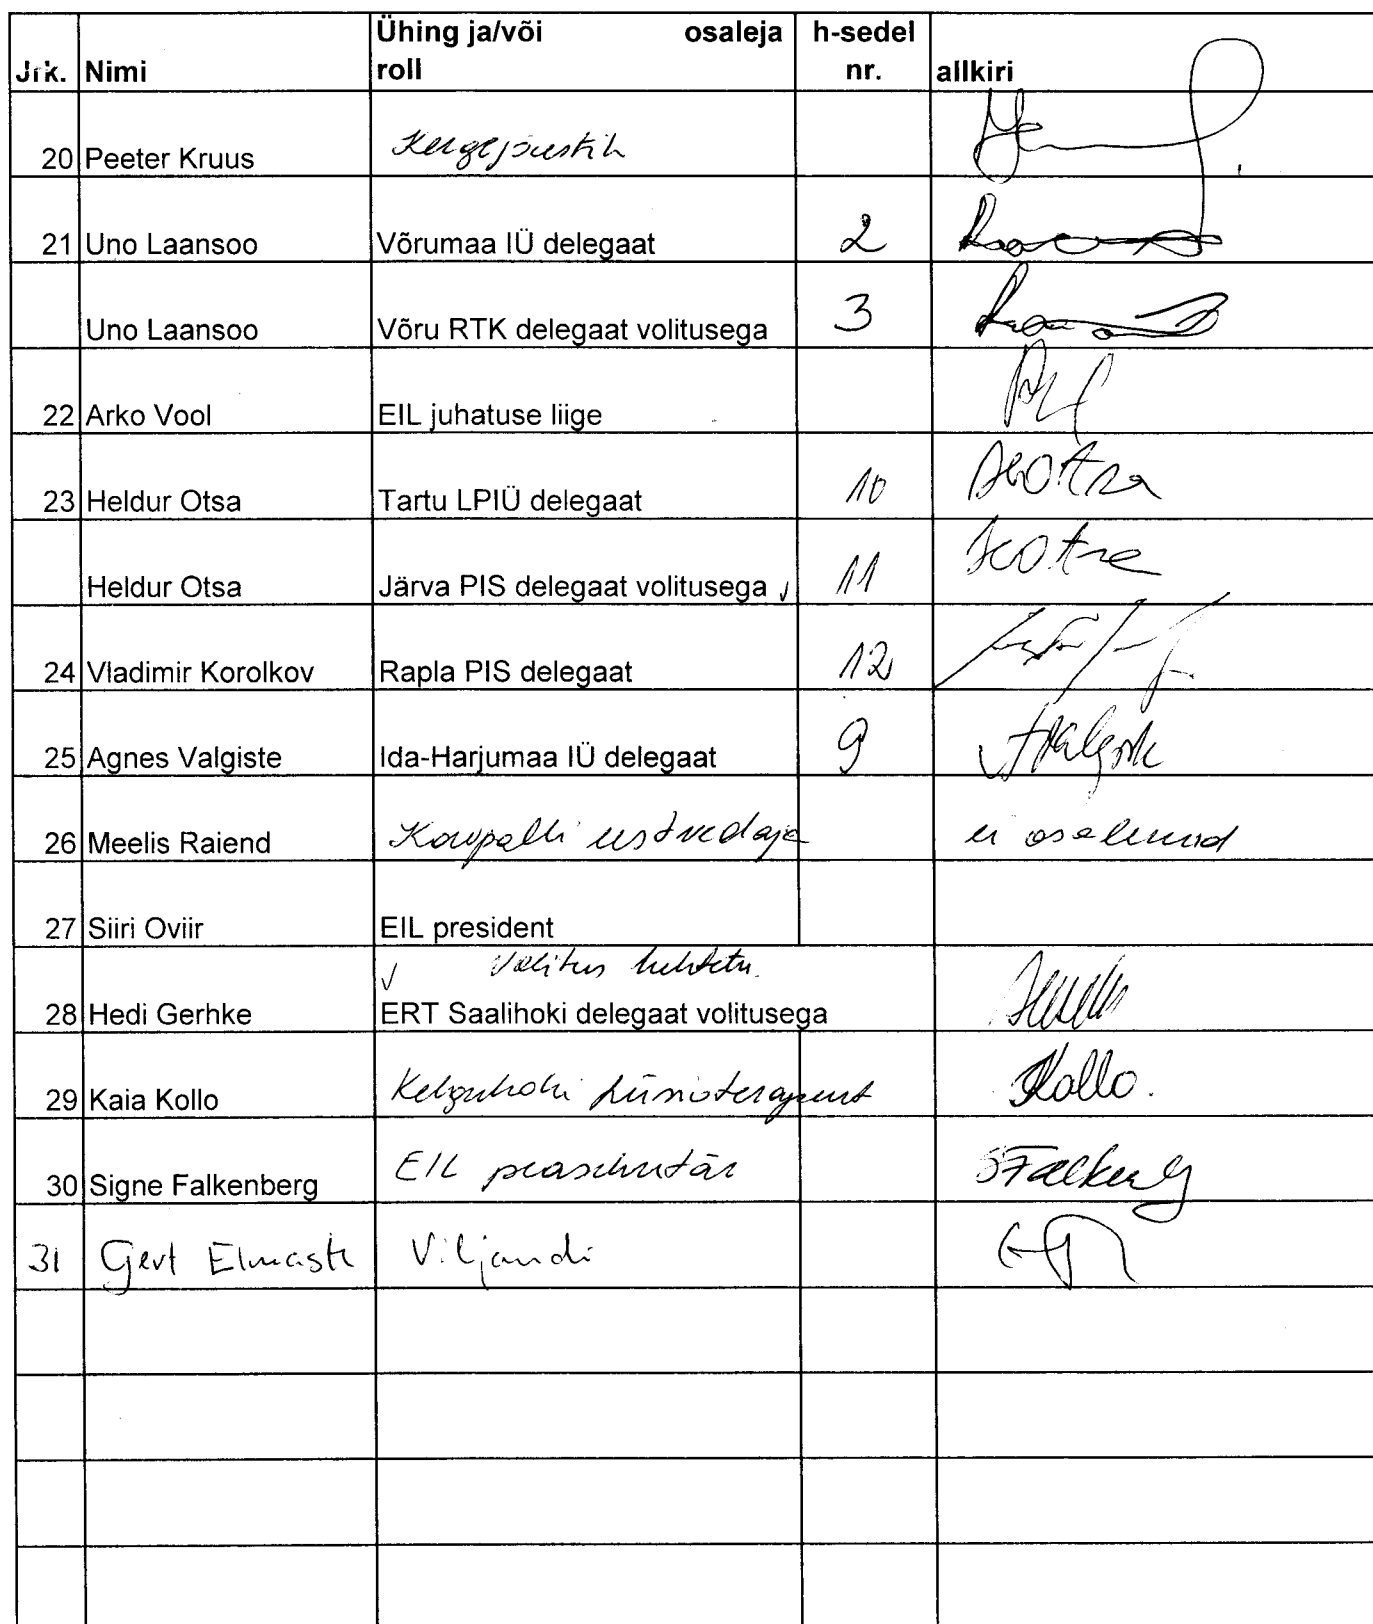 Jrk. Nimi Ühing ja/või osaleja roll h-sedel nr. allkiri
20 Peeter Kruus
21 Uno Laansoo Võrumaa IÜ delegaat 2
Uno Laansoo Võru RTK delegaat volitusega 3
22 Arko Vool EIL juhatuse liige
23 Heldur Otsa Tartu LPIÜ delegaat 10
Heldur Otsa Järva PIS delegaat volitusega 11
24 Vladimir Korolkov Rapla PIS delegaat 12
25 Agnes Valgiste Ida-Harjumaa IÜ delegaat 9
26 Meelis Raiend eestvedaja ei osalenud
27 Siiri Oviir EIL president
Volitus kehtetu.
28 Hedi Gerhke ERT Saalihoki delegaat volitusega
29 Kaia Kollo Kelguhoki füsioterapeut Kollo.
30 Signe Falkenberg EIL peasekretär SFalkenberg
31 Gert Elmaste Viljandi